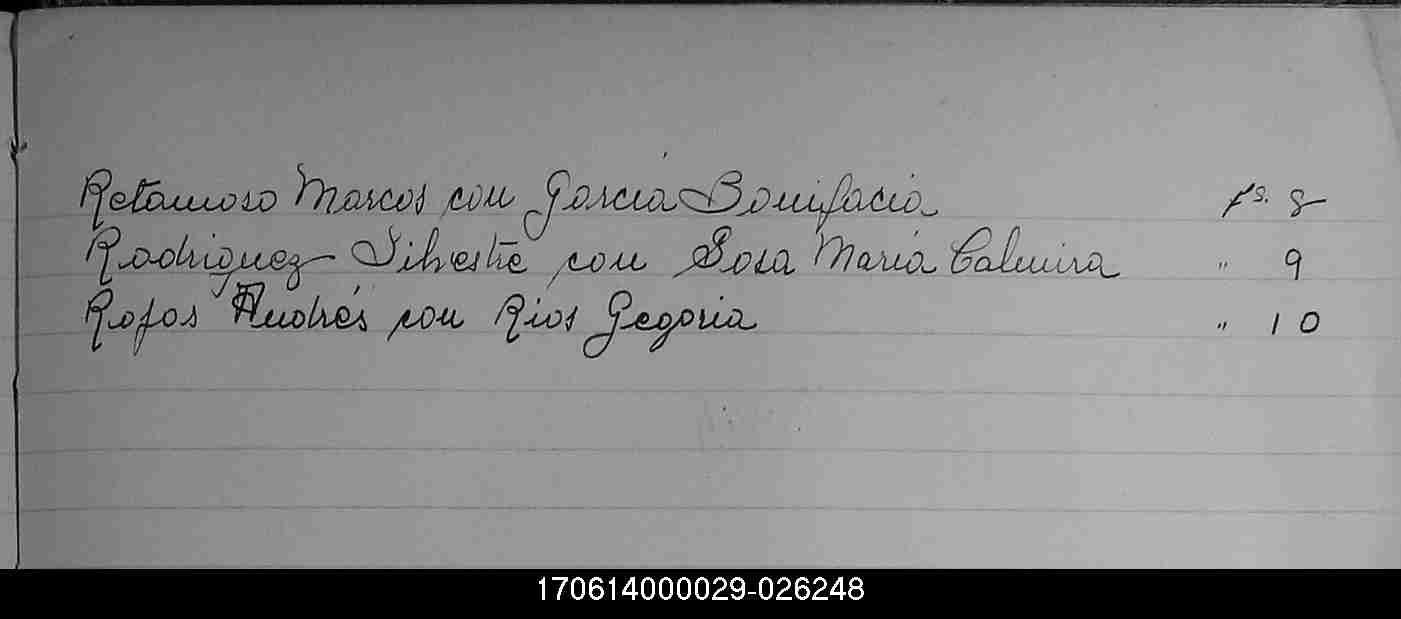 Retamoso Marcos con García Bonifacia fs. 8
Rodriguez Silvestre con Sosa María Calmira " 9
Rofos Andrés con Rios Gegoria " 10
170614000029-026248